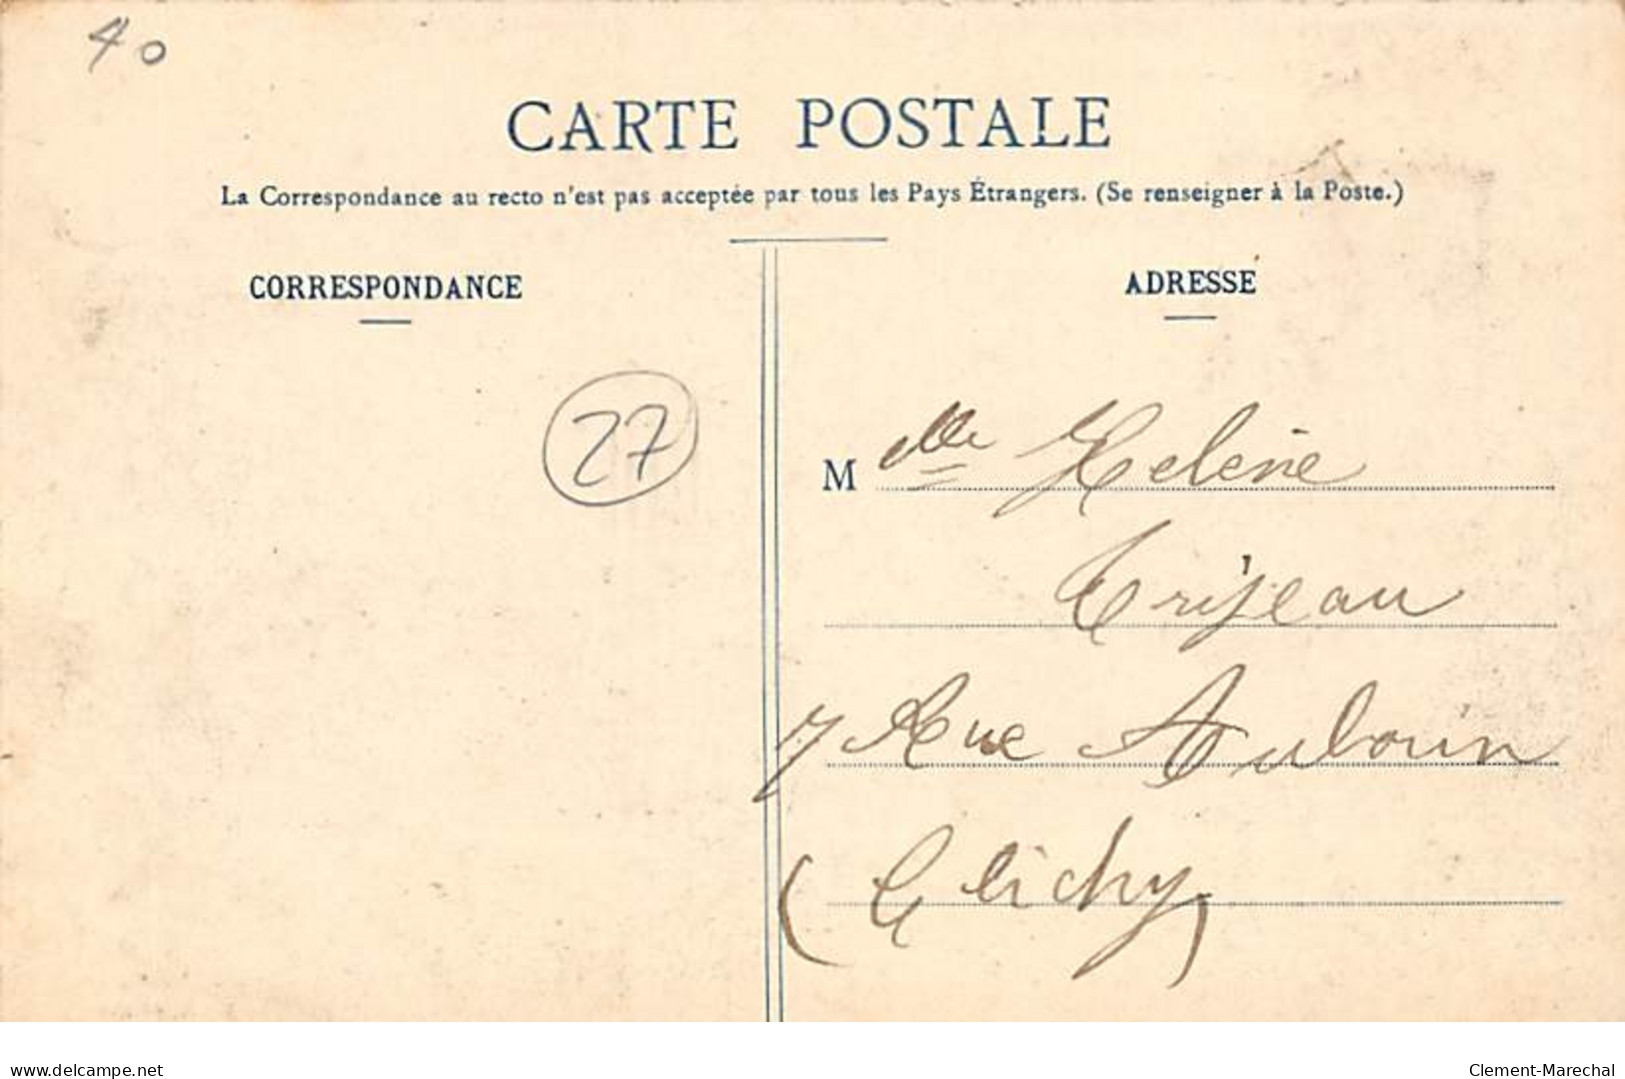 40
CARTE POSTALE
La Correspondance au recto n'est pas acceptée par tous les Pays Étrangers. (Se renseigner à la Poste.)
CORRESPONDANCE
ADRESSE
27
M elle Helène
Trijeau
7 Rue Aubouin
(Clichy)
www.delcampe.net
Clement-Marechal